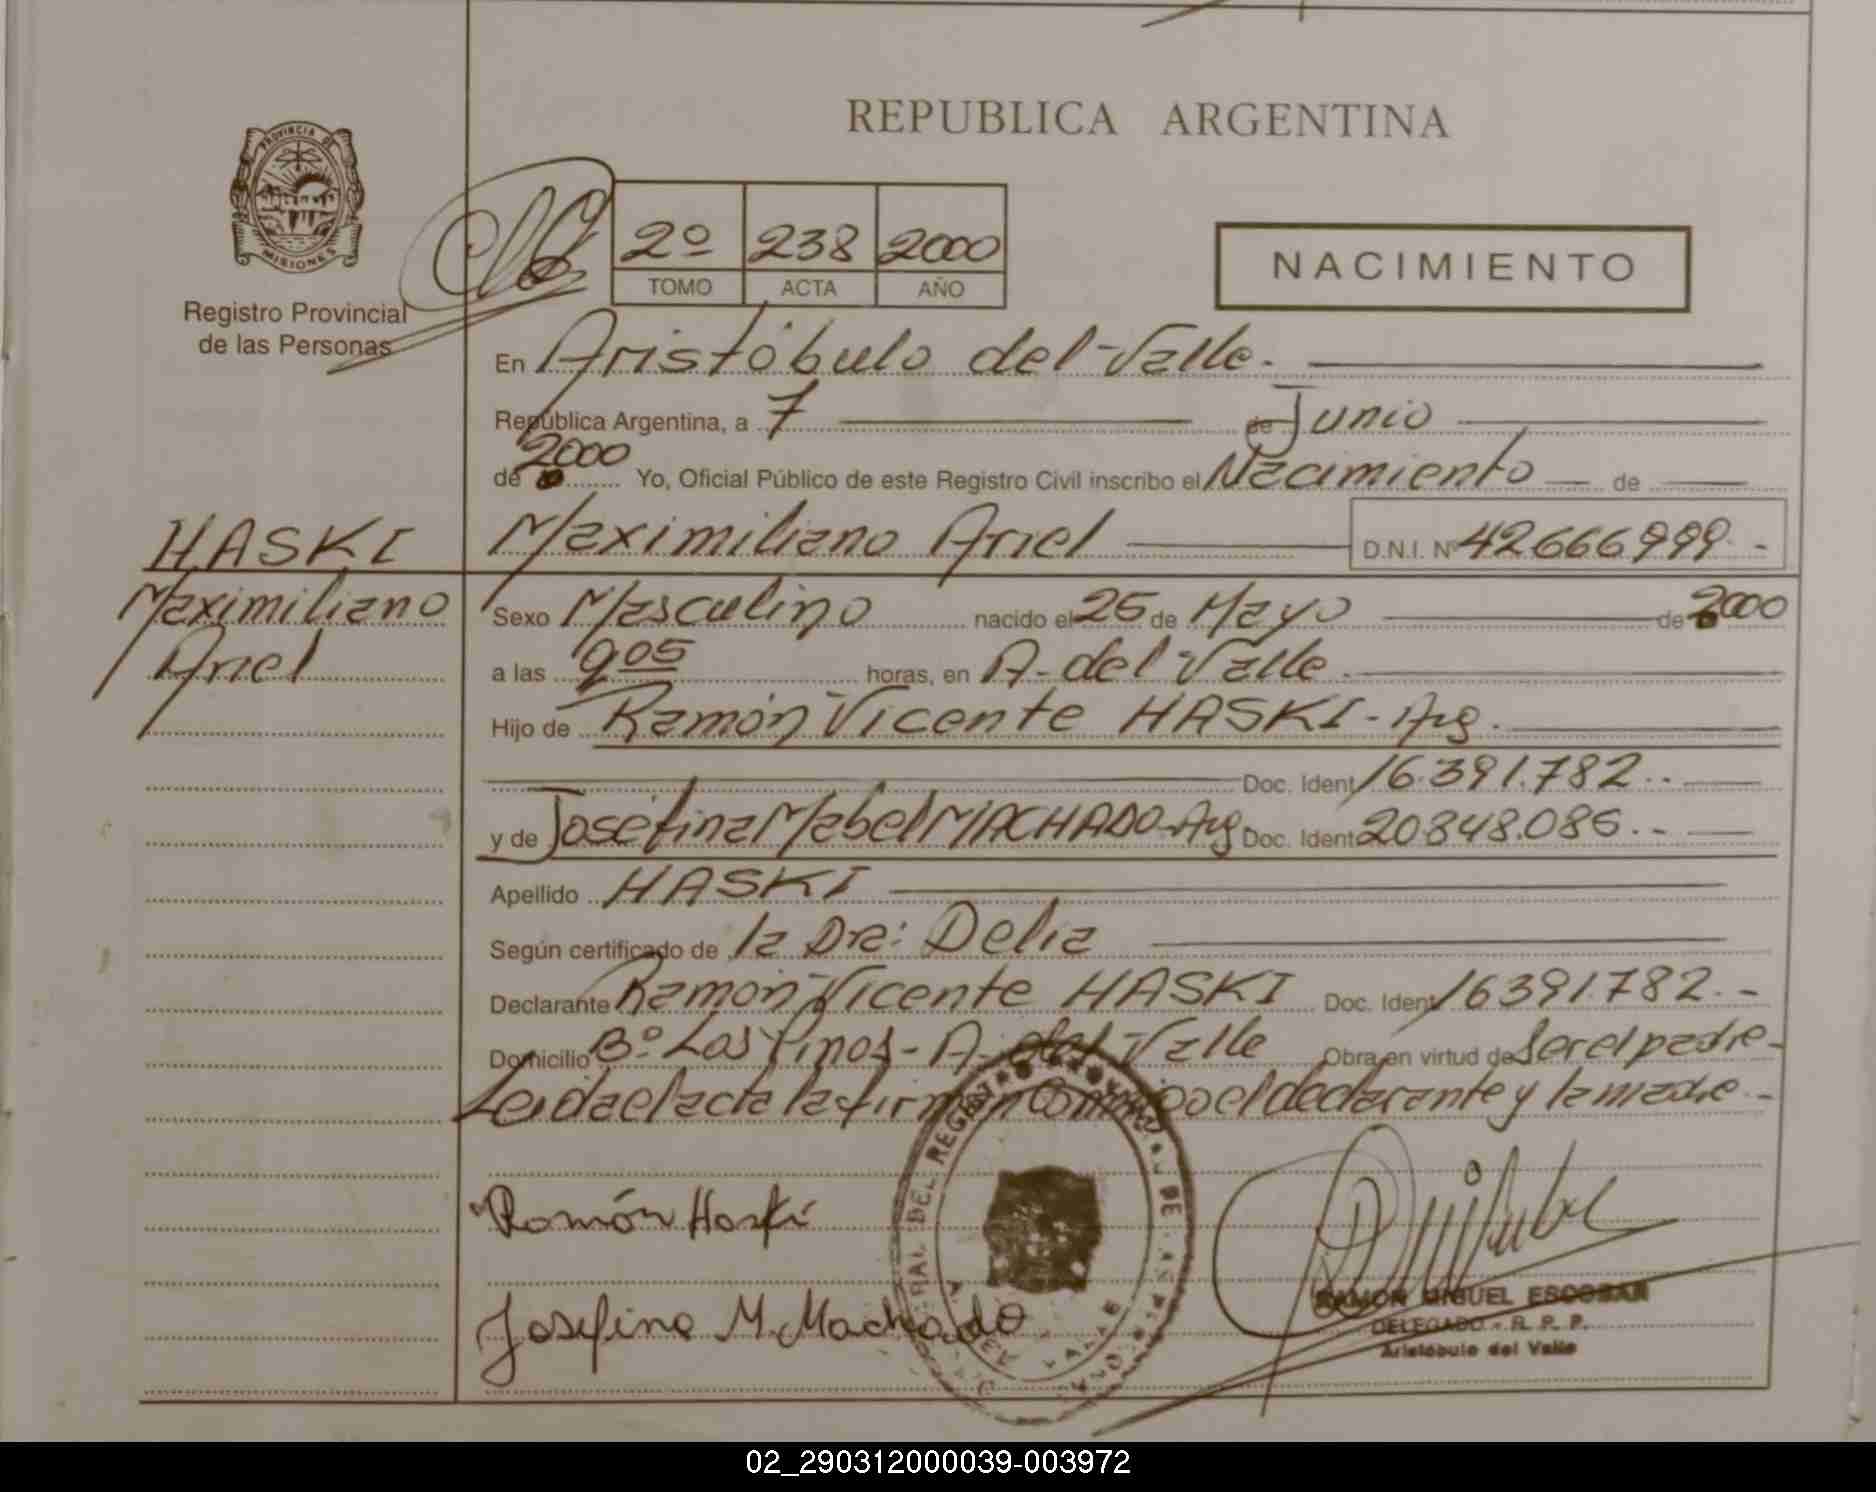 REPUBLICA ARGENTINA
PROVINCIA DE
MISIONES
Registro Provincial
de las Personas
2º 238 2000
TOMO ACTA AÑO
NACIMIENTO
En Aristóbulo del Valle.
República Argentina, a 7 de Junio
de 2000 Yo, Oficial Público de este Registro Civil inscribo el Nacimiento de
HASKI
Maximiliano Ariel D.N.I. Nº 42666999
Maximiliano
Ariel
Sexo Masculino nacido el 25 de Mayo de 2000
a las 9 05 horas, en A. del Valle
Hijo de Ramón Vicente HASKI - Arg.
Doc. Ident. 16.391.782
y de Josefina Mabel MACHADO-Arg Doc. Ident. 20.848.086
Apellido HASKI
Según certificado de la Dra: Delia
Declarante Ramón Vicente HASKI Doc. Ident. 16391.782.-
Domicilio Bº Los Pinos - A. del Valle Obra en virtud de Ser el padre-
Leida el acta la firman Conmigo el declarante y la madre.-
Ramón Haski
Josefina M. Machado
RAMON MIGUEL ESCOBAR
DELEGADO - R. P. P.
Aristóbulo del Valle
02_290312000039-003972